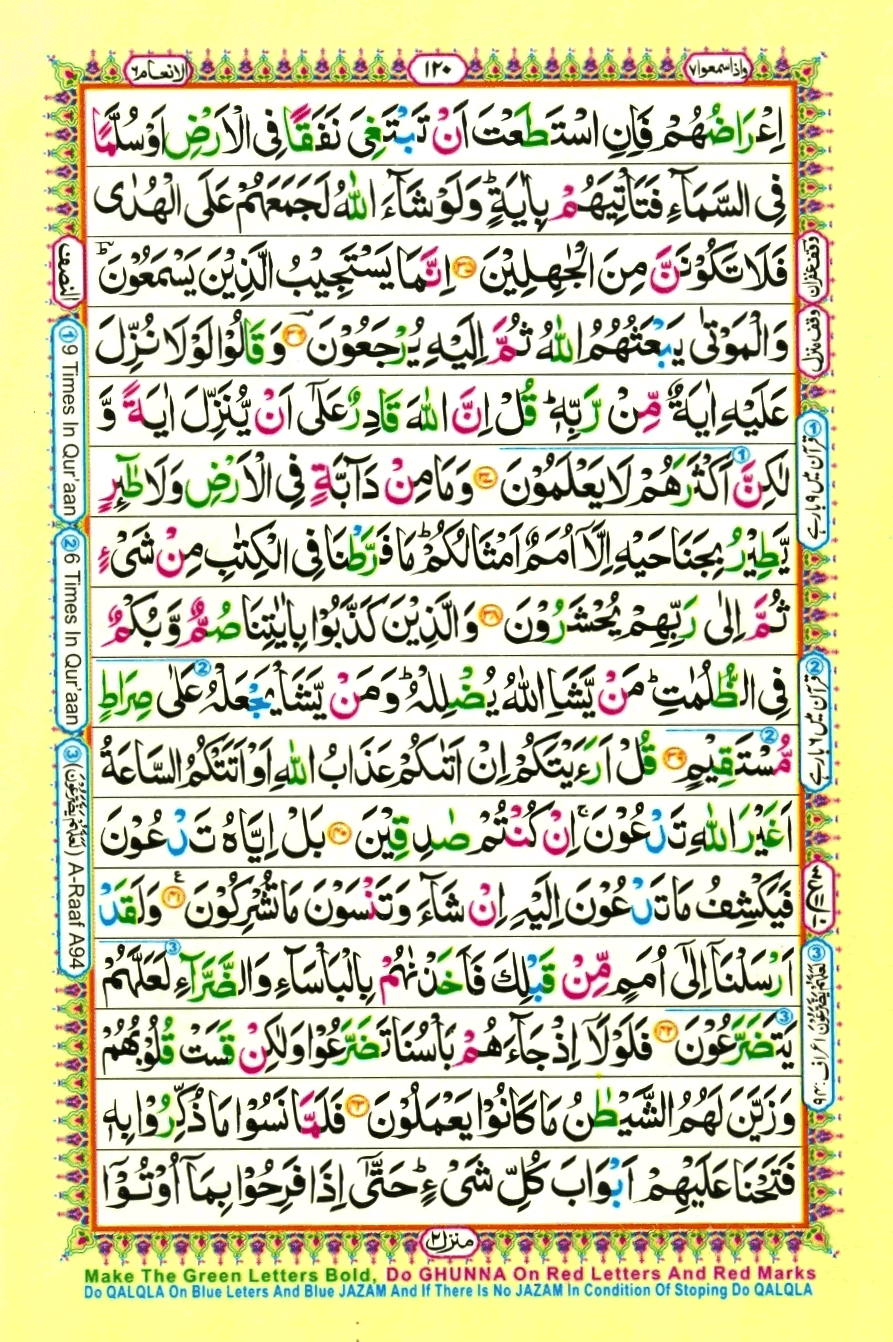 الانعام ٦
١٢٠
واذاسمعوا ٧
اِعْرَاضُهُمْ فَاِنِ اسْتَطَعْتَ اَنْ تَبْتَغِیَ نَفَقًا فِی الْاَرْضِ اَوْ سُلَّمًا
فِی السَّمَآءِ فَتَاْتِیَهُمْ بِاٰیَةٍ ؕ وَلَوْ شَآءَ اللّٰهُ لَجَمَعَهُمْ عَلَی الْهُدٰی
فَلَا تَكُوْنَنَّ مِنَ الْجٰهِلِیْنَ ﴿۳۵﴾ اِنَّمَا یَسْتَجِیْبُ الَّذِیْنَ یَسْمَعُوْنَ ؕ
وَالْمَوْتٰی یَبْعَثُهُمُ اللّٰهُ ثُمَّ اِلَیْهِ یُرْجَعُوْنَ ﴿۳۶﴾ وَقَالُوْا لَوْلَا نُزِّلَ
عَلَیْهِ اٰیَةٌ مِّنْ رَّبِّهٖ ؕ قُلْ اِنَّ اللّٰهَ قَادِرٌ عَلٰۤی اَنْ یُّنَزِّلَ اٰیَةً وَّ
لٰكِنَّ اَكْثَرَهُمْ لَا یَعْلَمُوْنَ ﴿۳۷﴾ وَمَا مِنْ دَآبَّةٍ فِی الْاَرْضِ وَلَا طٰٓئِرٍ
یَّطِیْرُ بِجَنَاحَیْهِ اِلَّاۤ اُمَمٌ اَمْثَالُكُمْ ؕ مَا فَرَّطْنَا فِی الْكِتٰبِ مِنْ شَیْءٍ
ثُمَّ اِلٰی رَبِّهِمْ یُحْشَرُوْنَ ﴿۳۸﴾ وَالَّذِیْنَ كَذَّبُوْا بِاٰیٰتِنَا صُمٌّ وَّبُكْمٌ
فِی الظُّلُمٰتِ ؕ مَنْ یَّشَاِ اللّٰهُ یُضْلِلْهُ ؕ وَمَنْ یَّشَاْ یَجْعَلْهُ عَلٰی صِرَاطٍ
مُّسْتَقِیْمٍ ﴿۳۹﴾ قُلْ اَرَءَیْتَكُمْ اِنْ اَتٰىكُمْ عَذَابُ اللّٰهِ اَوْ اَتَتْكُمُ السَّاعَةُ
اَغَیْرَ اللّٰهِ تَدْعُوْنَ ۚ اِنْ كُنْتُمْ صٰدِقِیْنَ ﴿۴۰﴾ بَلْ اِیَّاهُ تَدْعُوْنَ
فَیَكْشِفُ مَا تَدْعُوْنَ اِلَیْهِ اِنْ شَآءَ وَتَنْسَوْنَ مَا تُشْرِكُوْنَ ﴿۴۱﴾ وَلَقَدْ
اَرْسَلْنَاۤ اِلٰۤی اُمَمٍ مِّنْ قَبْلِكَ فَاَخَذْنٰهُمْ بِالْبَاْسَآءِ وَالضَّرَّآءِ لَعَلَّهُمْ
یَتَضَرَّعُوْنَ ﴿۴۲﴾ فَلَوْلَاۤ اِذْ جَآءَهُمْ بَاْسُنَا تَضَرَّعُوْا وَلٰكِنْ قَسَتْ قُلُوْبُهُمْ
وَزَیَّنَ لَهُمُ الشَّیْطٰنُ مَا كَانُوْا یَعْمَلُوْنَ ﴿۴۳﴾ فَلَمَّا نَسُوْا مَا ذُكِّرُوْا بِهٖ
فَتَحْنَا عَلَیْهِمْ اَبْوَابَ كُلِّ شَیْءٍ ؕ حَتّٰۤی اِذَا فَرِحُوْا بِمَاۤ اُوْتُوْۤا
وقف غفران
وقف منزل
① قرآن میں ۹ بارے
② قرآن میں ۶ بارے
③ لَعَلَّهُمْ یَضَّرَّعُوْنَ اعراف: ۹۴
النصف
① 9 Times In Qur'aan
② 6 Times In Qur'aan
③ (لَعَلَّهُمْ یَضَّرَّعُوْنَ) A-Raaf A94
منزل ۲
Make The Green Letters Bold, Do GHUNNA On Red Letters And Red Marks
Do QALQLA On Blue Leters And Blue JAZAM And If There Is No JAZAM In Condition Of Stoping Do QALQLA